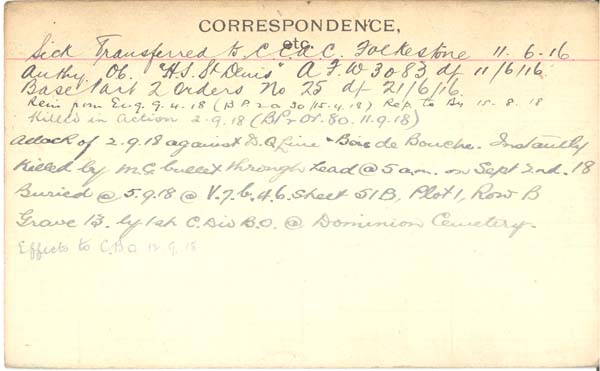 CORRESPONDENCE,
etc.
Sick Transferred to C.C.A.C. Folkestone 11-6-16
Authy. Ob. "H.S. St Denis" A F. W 3083 df 11/6/16
Base Part 2 Orders No 25 df 21/6/16.
Rein from Eng. 9-4-18 (B P 2 O 30/15-4-18) Rep. to Bn 15-8-18
Killed in action 2-9-18 (B.P.2 Or. 80. 11.9.18)
Attack of 2-9-18 against D.Q Line - Bois de Bouche. Instantly
killed by M.G. bullet through head @ 5 a.m. on Sept 2nd. 18
Buried @ 5.9.18 @ V.7.b.4.6. Sheet 51B, Plot 1, Row B
Grave 13. by 1st C. Div B.O. @ Dominion Cemetery.
Effects to C.Bo 12.9.18